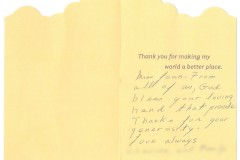 Thank you for making my
world a better place.
From
all of us, God
bless your loving
hand that provide
Thanks for your
generosity.
Love always